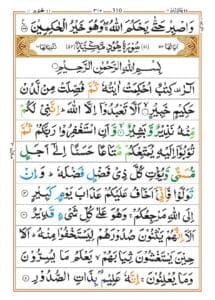 وَاصْبِرْ حَتّٰى يَحْكُمَ اللّٰهُ ۚ وَهُوَ خَيْرُ الْحٰكِمِيْنَ
سُوْرَةُ هُوْدٍ مَّكِّيَّةٌ
بِسْمِ اللّٰهِ الرَّحْمٰنِ الرَّحِيْمِ
الٓرٰ كِتٰبٌ اُحْكِمَتْ اٰيٰتُهٗ ثُمَّ فُصِّلَتْ مِنْ لَّدُنْ
حَكِيْمٍ خَبِيْرٍ اَلَّا تَعْبُدُوْٓا اِلَّا اللّٰهَ اِنَّنِيْ لَكُمْ مِّنْهُ
نَذِيْرٌ وَّبَشِيْرٌ وَّاَنِ اسْتَغْفِرُوْا رَبَّكُمْ ثُمَّ
تُوْبُوْٓا اِلَيْهِ يُمَتِّعْكُمْ مَّتَاعًا حَسَنًا اِلٰٓى اَجَلٍ
مُّسَمًّى وَّيُؤْتِ كُلَّ ذِيْ فَضْلٍ فَضْلَهٗ وَاِنْ
تَوَلَّوْا فَاِنِّيْٓ اَخَافُ عَلَيْكُمْ عَذَابَ يَوْمٍ كَبِيْرٍ
اِلَى اللّٰهِ مَرْجِعُكُمْ وَهُوَ عَلٰى كُلِّ شَيْءٍ قَدِيْرٌ
اَلَآ اِنَّهُمْ يَثْنُوْنَ صُدُوْرَهُمْ لِيَسْتَخْفُوْا مِنْهُ اَلَا
حِيْنَ يَسْتَغْشُوْنَ ثِيَابَهُمْ يَعْلَمُ مَا يُسِرُّوْنَ
وَمَا يُعْلِنُوْنَ اِنَّهٗ عَلِيْمٌۢ بِذَاتِ الصُّدُوْرِ